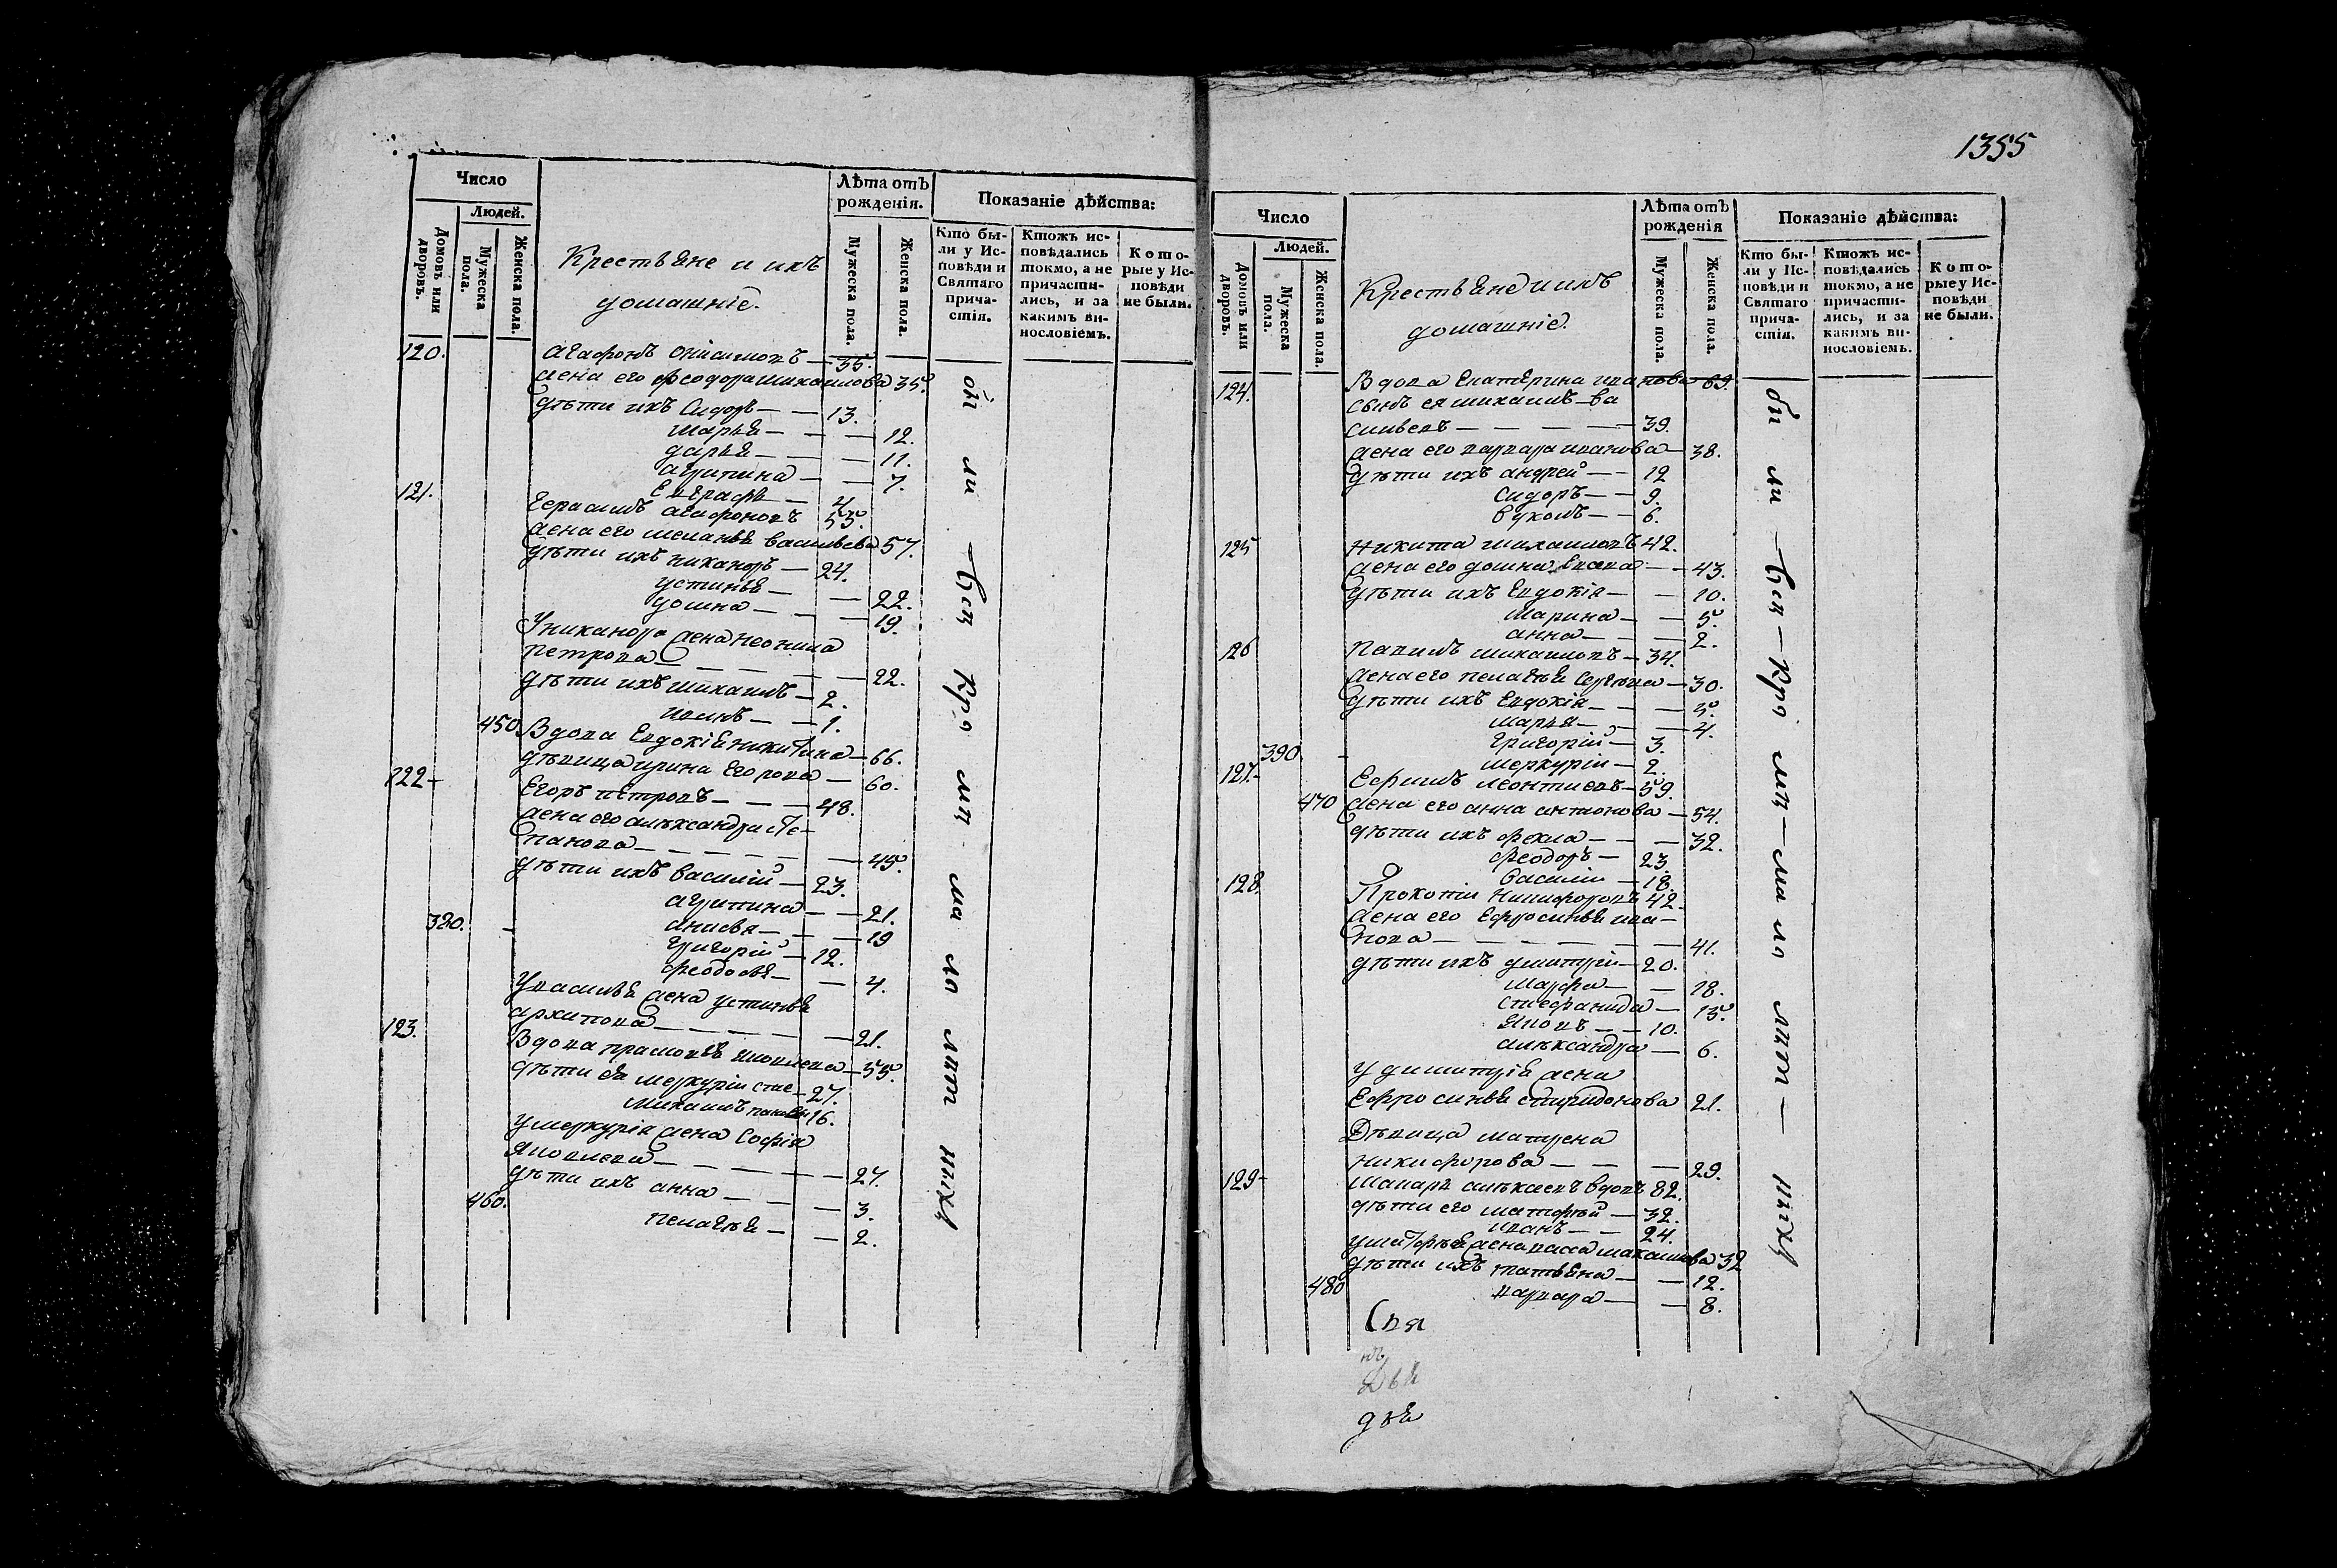 Число
Людей.
Домовъ или дворовъ.
Мужеска пола.
Женска пола.
Крестьяне и ихъ
домашніе.
Лѣта отъ
рожденія.
Мужеска пола.
Женска пола.
Показаніе дѣйства:
Кто бы-
ли у Ис-
повѣди и
Святаго
прича-
стія.
Ктожъ ис-
повѣдались
токмо, а не
причасти-
лись, и за
какимъ ви-
нословіемъ.
Кото-
рые у Ис-
повѣди
не были.
120. агафонъ онисимовъ — 35.
жена его феодора михаилова 35.
дѣти ихъ Сидоръ — — 13.
марья — — — 12.
дарья — — — 11.
агрипина — — 7.
Евграфъ — 4
121. герасимъ агафоновъ 55.
жена его меланья васильева 57.
дѣти ихъ никаноръ — 24.
устинья — — 22.
домна — — — 19.
У никанора жена неонила
петрова — — — — 22.
дѣти ихъ михаилъ — 2.
— — 1.
450 Вдова Евдокія никитина — 66.
дѣвица ирина Егорова — 60.
122 — Егоръ петровъ — — — 48.
жена его алѣксандра сте-
панова — — — — — 45.
дѣти ихъ василій — 23.
агрипина — — 21.
380. — анисья — — — 19
григорій — 12.
феодосья — — 4.
У василья жена устинья
архипова — — — — — 21.
123. Вдова прасковья — 55.
дѣти ея меркуріи — 27.
михаилъ 16.
У меркурія жена Софія
Яковлева — — — — — 27.
дѣти ихъ анна — — — 3.
460. пелагѣя — — 2.
бы ли всѣ кро мѣ ма ло лѣт ныхъ
1355
Число
Людей.
Домовъ или дворовъ.
Мужеска пола.
Женска пола.
Крестьяне и ихъ
домашніе.
Лѣта отъ
рожденія
Мужеска пола.
Женска пола.
Показаніе дѣйства:
Кто бы-
ли у Ис-
повѣди и
Святаго
прича-
стія.
Ктожъ ис-
повѣдались
токмо, а не
причасти-
лись, и за
какимъ ви-
нословіемъ.
Кото-
рые у Ис-
повѣди
не были.
124. Вдова Екатерина иванова 69.
сынъ ея михаилъ — ва
сильевъ — — — — 39.
жена его варвара иванова — 38.
дѣти ихъ андрей — — 12
сидоръ — — 9.
вуколъ — — 6.
125 никита михаиловъ 42.
жена его домна — — 43.
дѣти ихъ Евдокія — — 10.
марина — — 5.
анна — — — 2.
126 михаиловъ — 34.
жена его пелагѣя сергѣева — 30.
дѣти ихъ Евдокія — — — 5.
марья — — — 4.
григорій — 3.
390. — меркуріи — 2.
127. — Ефимъ леонтиевъ — 59.
470 жена его анна антонова — 54.
дѣти ихъ фекла — — — 32.
феодоръ — 23.
василіи — 18.
128. Прокопіи никифоровъ 42.
жена его Ефросинья ива —
нова — — — — — — 41.
дѣти ихъ димитріи — 20.
марфа — — 18.
стефанида — 13.
Яковъ — — 10.
алѣксандра — 6.
У димитрія жена
Ефросинья спиридонова 21.
Дѣвица матрена
никифорова — — — 29.
129 — макаръ алѣксеевъ вдовъ 82.
дѣти его матфѣй — 32.
иванъ — — 24.
у матфѣя жена васса михаилова 32
дѣти ихъ татьяна — — 12.
480 варвара — — 8.
бы ли — всѣ — кро мѣ — ма ло лѣт — ныхъ
Свя